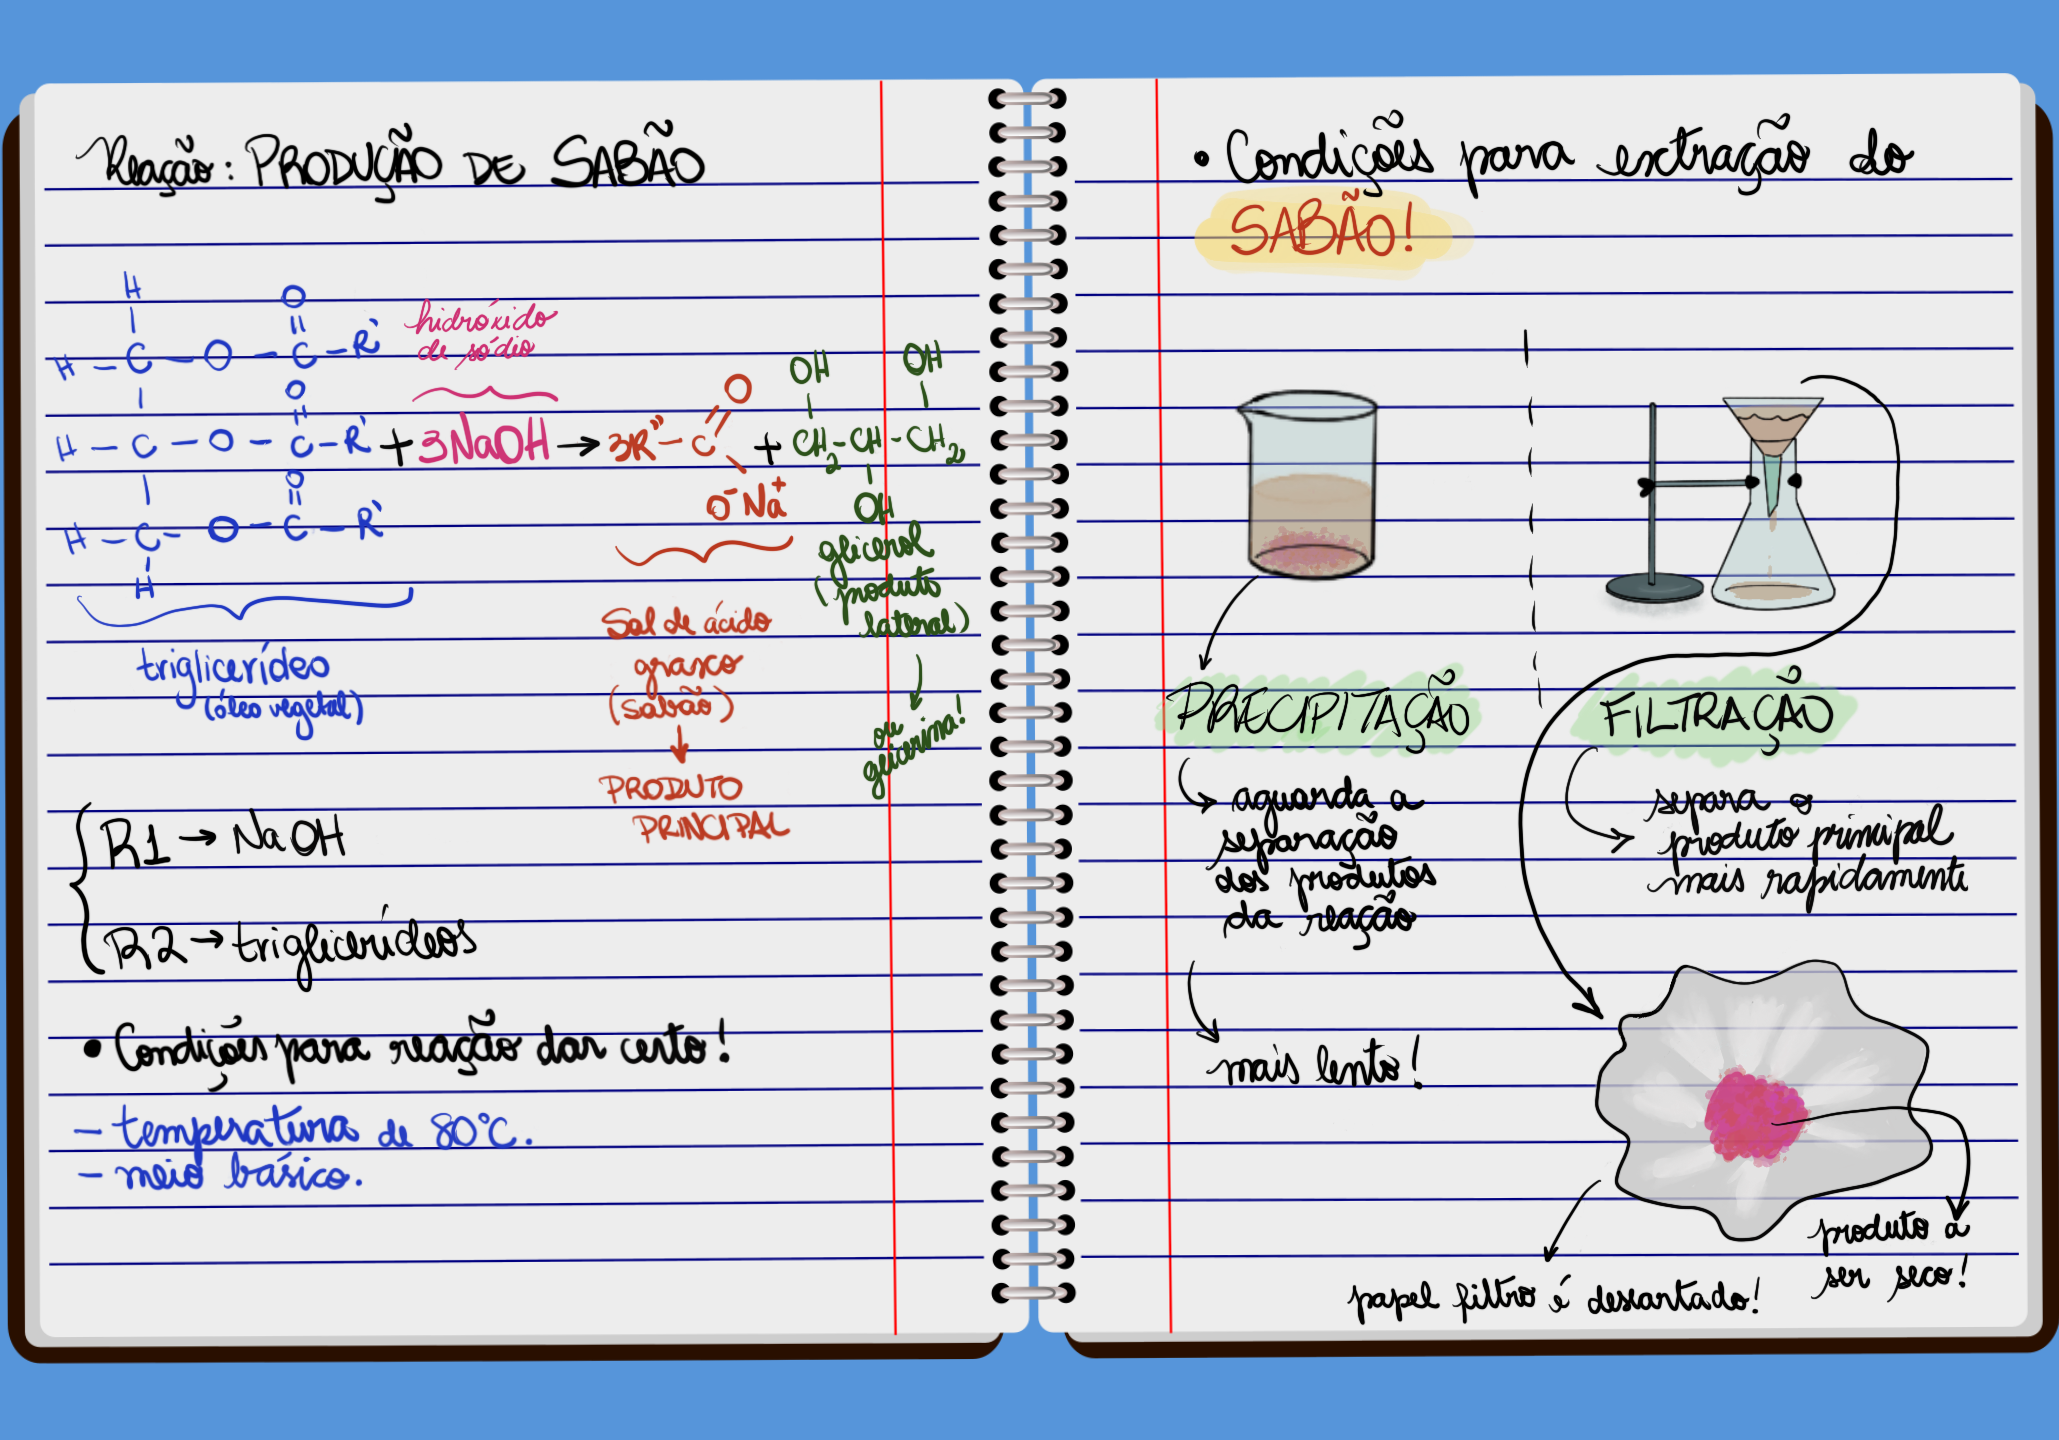 Reação: PRODUÇÃO DE SABÃO
H O
H – C – O – C – R'
hidróxido
de sódio
O OH OH
H – C – O – C – R' + 3NaOH → 3R'' – C O + CH2 – CH – CH2
O O⁻Na⁺ OH
H – C – O – C – R'
H
triglicerídeo
(óleo vegetal)
Sal de ácido
graxo
(sabão)
PRODUTO
PRINCIPAL
glicerol
(produto
lateral)
ou
glicerina!
R1 → NaOH
R2 → triglicerídeos
• Condições para reação dar certo!
– temperatura de 80°C.
– meio básico.
• Condições para extração do
SABÃO!
PRECIPITAÇÃO
aguarda a
separação
dos produtos
da reação
mais lento!
FILTRAÇÃO
separa o
produto principal
mais rapidamente
produto a
ser seco!
papel filtro é descartado!